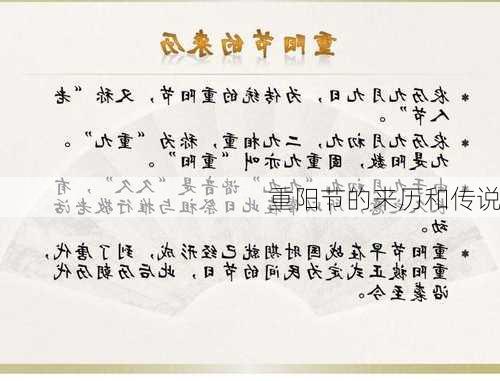 重阳节的来历
* 农历九月九日，为传统的重阳节，又称“老
人节”。
* 农历九月初九，二九相重，称为“重九”。
九是阳数，固重九亦叫“重阳”。
九”谐音是“久久”，有
重阳节的来历和传说
在此日祭祖与推行敬老活
动。
* 重阳节早在战国时期就已经形成，到了唐代，
重阳被正式定为民间的节日，此后历朝历代
沿袭至今。